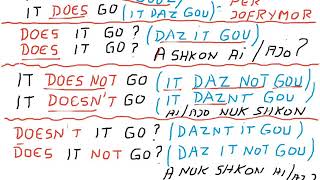 IT DOES GO (IT DAZ GOU) PER
JOFRYMOR
DOES IT GO? (DAZ IT GOU)
DOES IT GO? A SHKON AI/AJO?
IT DOES NOT GO (IT DAZ NOT GOU)
IT DOESN'T GO (IT DAZNT GOU)
AI/AJO NUK SHKON
DOESN'T IT GO? (DAZNT IT GOU)
DOES IT NOT GO? (DAZ IT NOT GOU)
A NUK SHKON AI/AJO?